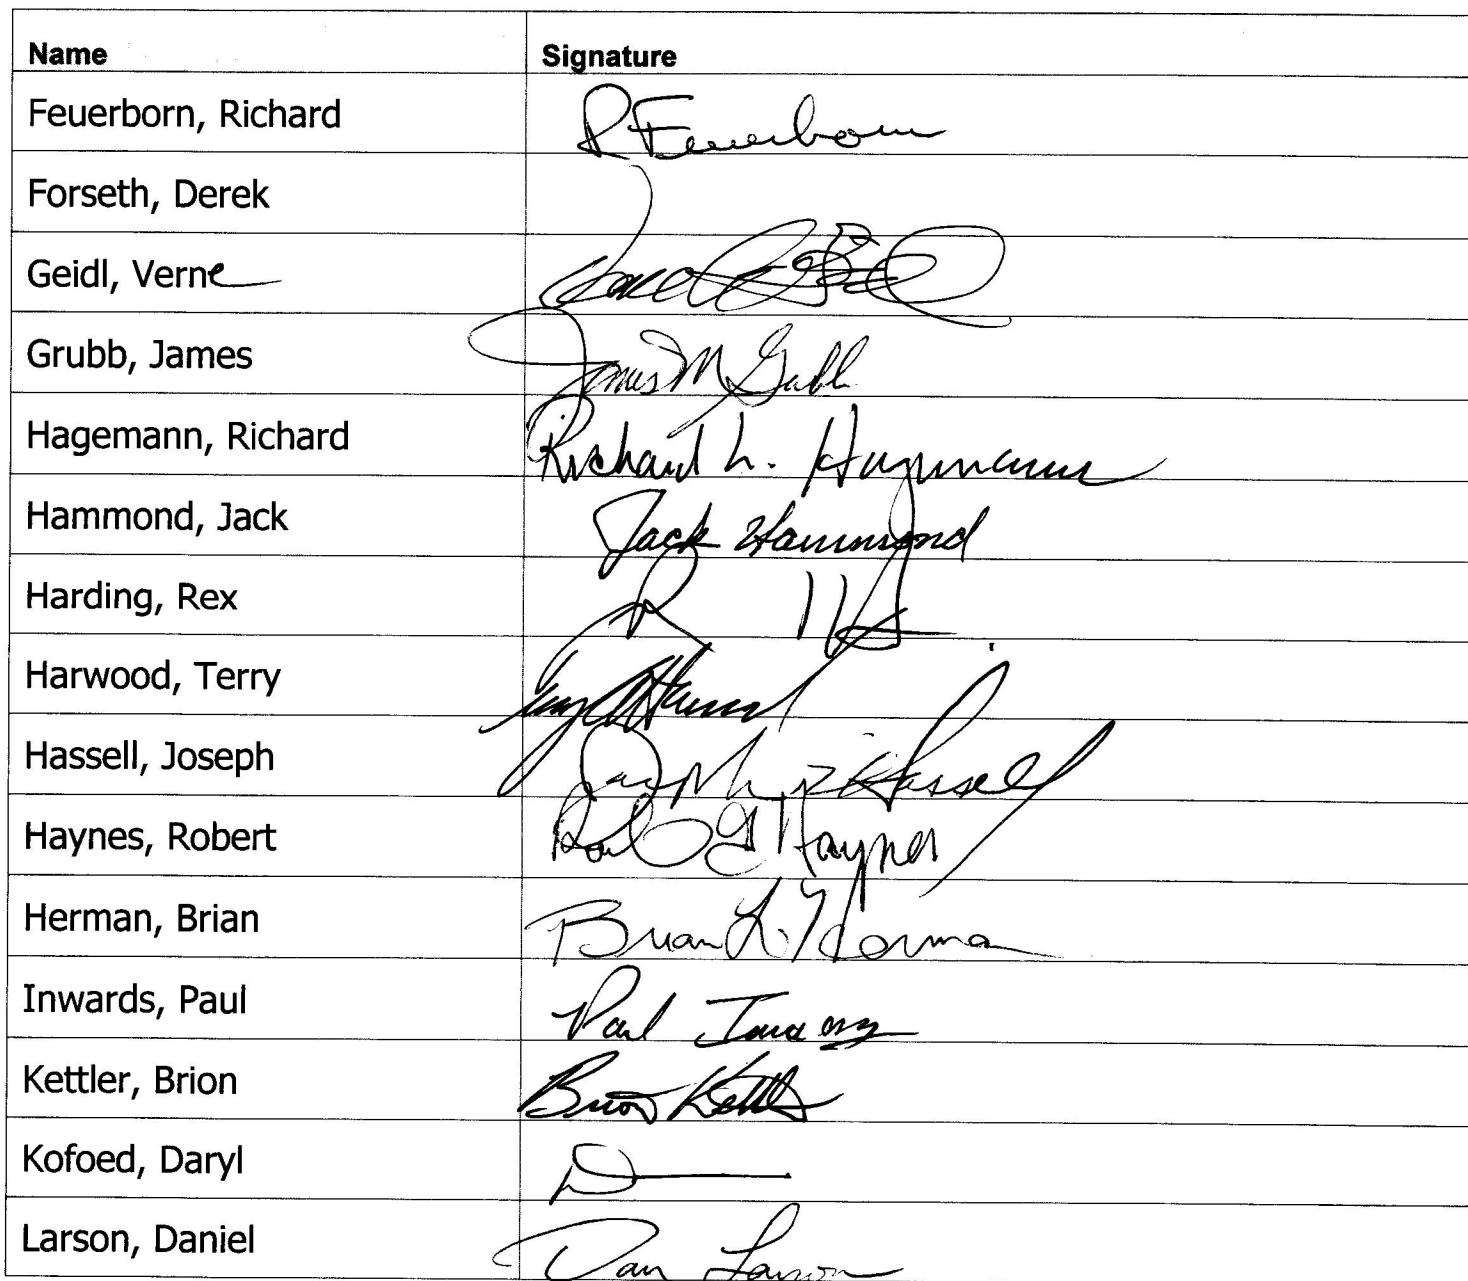 Name Signature
Feuerborn, Richard R Feuerborn
Forseth, Derek
Geidl, Verne
Grubb, James James M Grubb
Hagemann, Richard Richard L. Hagemann
Hammond, Jack Jack Hammond
Harding, Rex
Harwood, Terry
Hassell, Joseph Joseph Hassell
Haynes, Robert Haynes
Herman, Brian Brian L. Herman
Inwards, Paul Paul Inwards
Kettler, Brion Brion Kettler
Kofoed, Daryl
Larson, Daniel Dan Larson